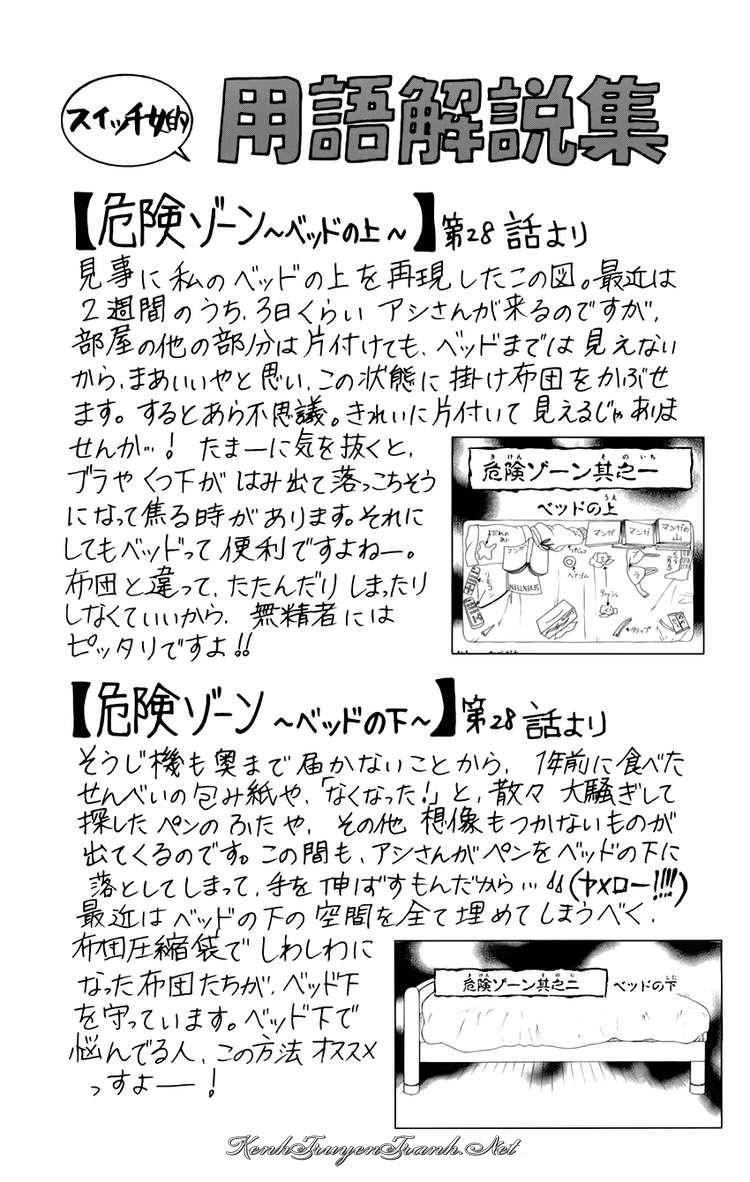 スイッチ女的
用語解説集
【危険ゾーン~ベッドの上~】第28話より
見事に私のベッドの上を再現したこの図。最近は
2週間のうち、3日くらい アシさんが来るのですが、
部屋の他の部分は片付けても、ベッドまでは見えない
から、まあいいやと思い、この状態に掛け布団をかぶせ
ます。するとあら不思議。きれいに片付いて見えるじゃありま
せんか…! たまーに気を抜くと、
ブラやくつ下がはみ出て落っこちそう
になって焦る時があります。それに
してもベッドって便利ですよねー。
布団と違って、たたんだりしまったり
しなくていいから、無精者には
ピッタリですよ!!
きけん そのいち
危険ゾーン其之一
うえ
ベッドの上
マンガ
マンガ
マンガ
マンガの山
ヘアゴム
クリップ
SEVENTEEN
【危険ゾーン ~ベッドの下~】第28話より
そうじ機も奥まで届かないことから、1年前に食べた
せんべいの包み紙や、「なくなった!」と、散々大騒ぎして
探したペンのふたや、その他 想像もつかないものが
出てくるのです。この間も、アシさんがペンをベッドの下に
落としてしまって、手を伸ばすもんだから…(ヤメロー!!!!)
最近はベッドの下の空間を全て埋めてしまうべく、
布団圧縮袋でしわしわに
なった布団たちが、ベッド下
を守っています。ベッド下で
悩んでる人、この方法オススメ
っすよー!
きけん そのに
危険ゾーン其之二
した
ベッドの下
KenhTruyenTranh.Net